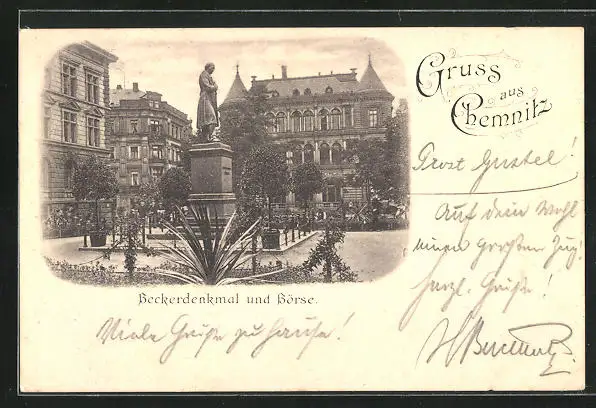 Gruss
aus
Chemnitz
Prost Gustel!
Auf dein Wohl
einen großen Zug!
herzl. Grüße!
Beckerdenkmal und Börse.
Viele Grüße zu Hause!